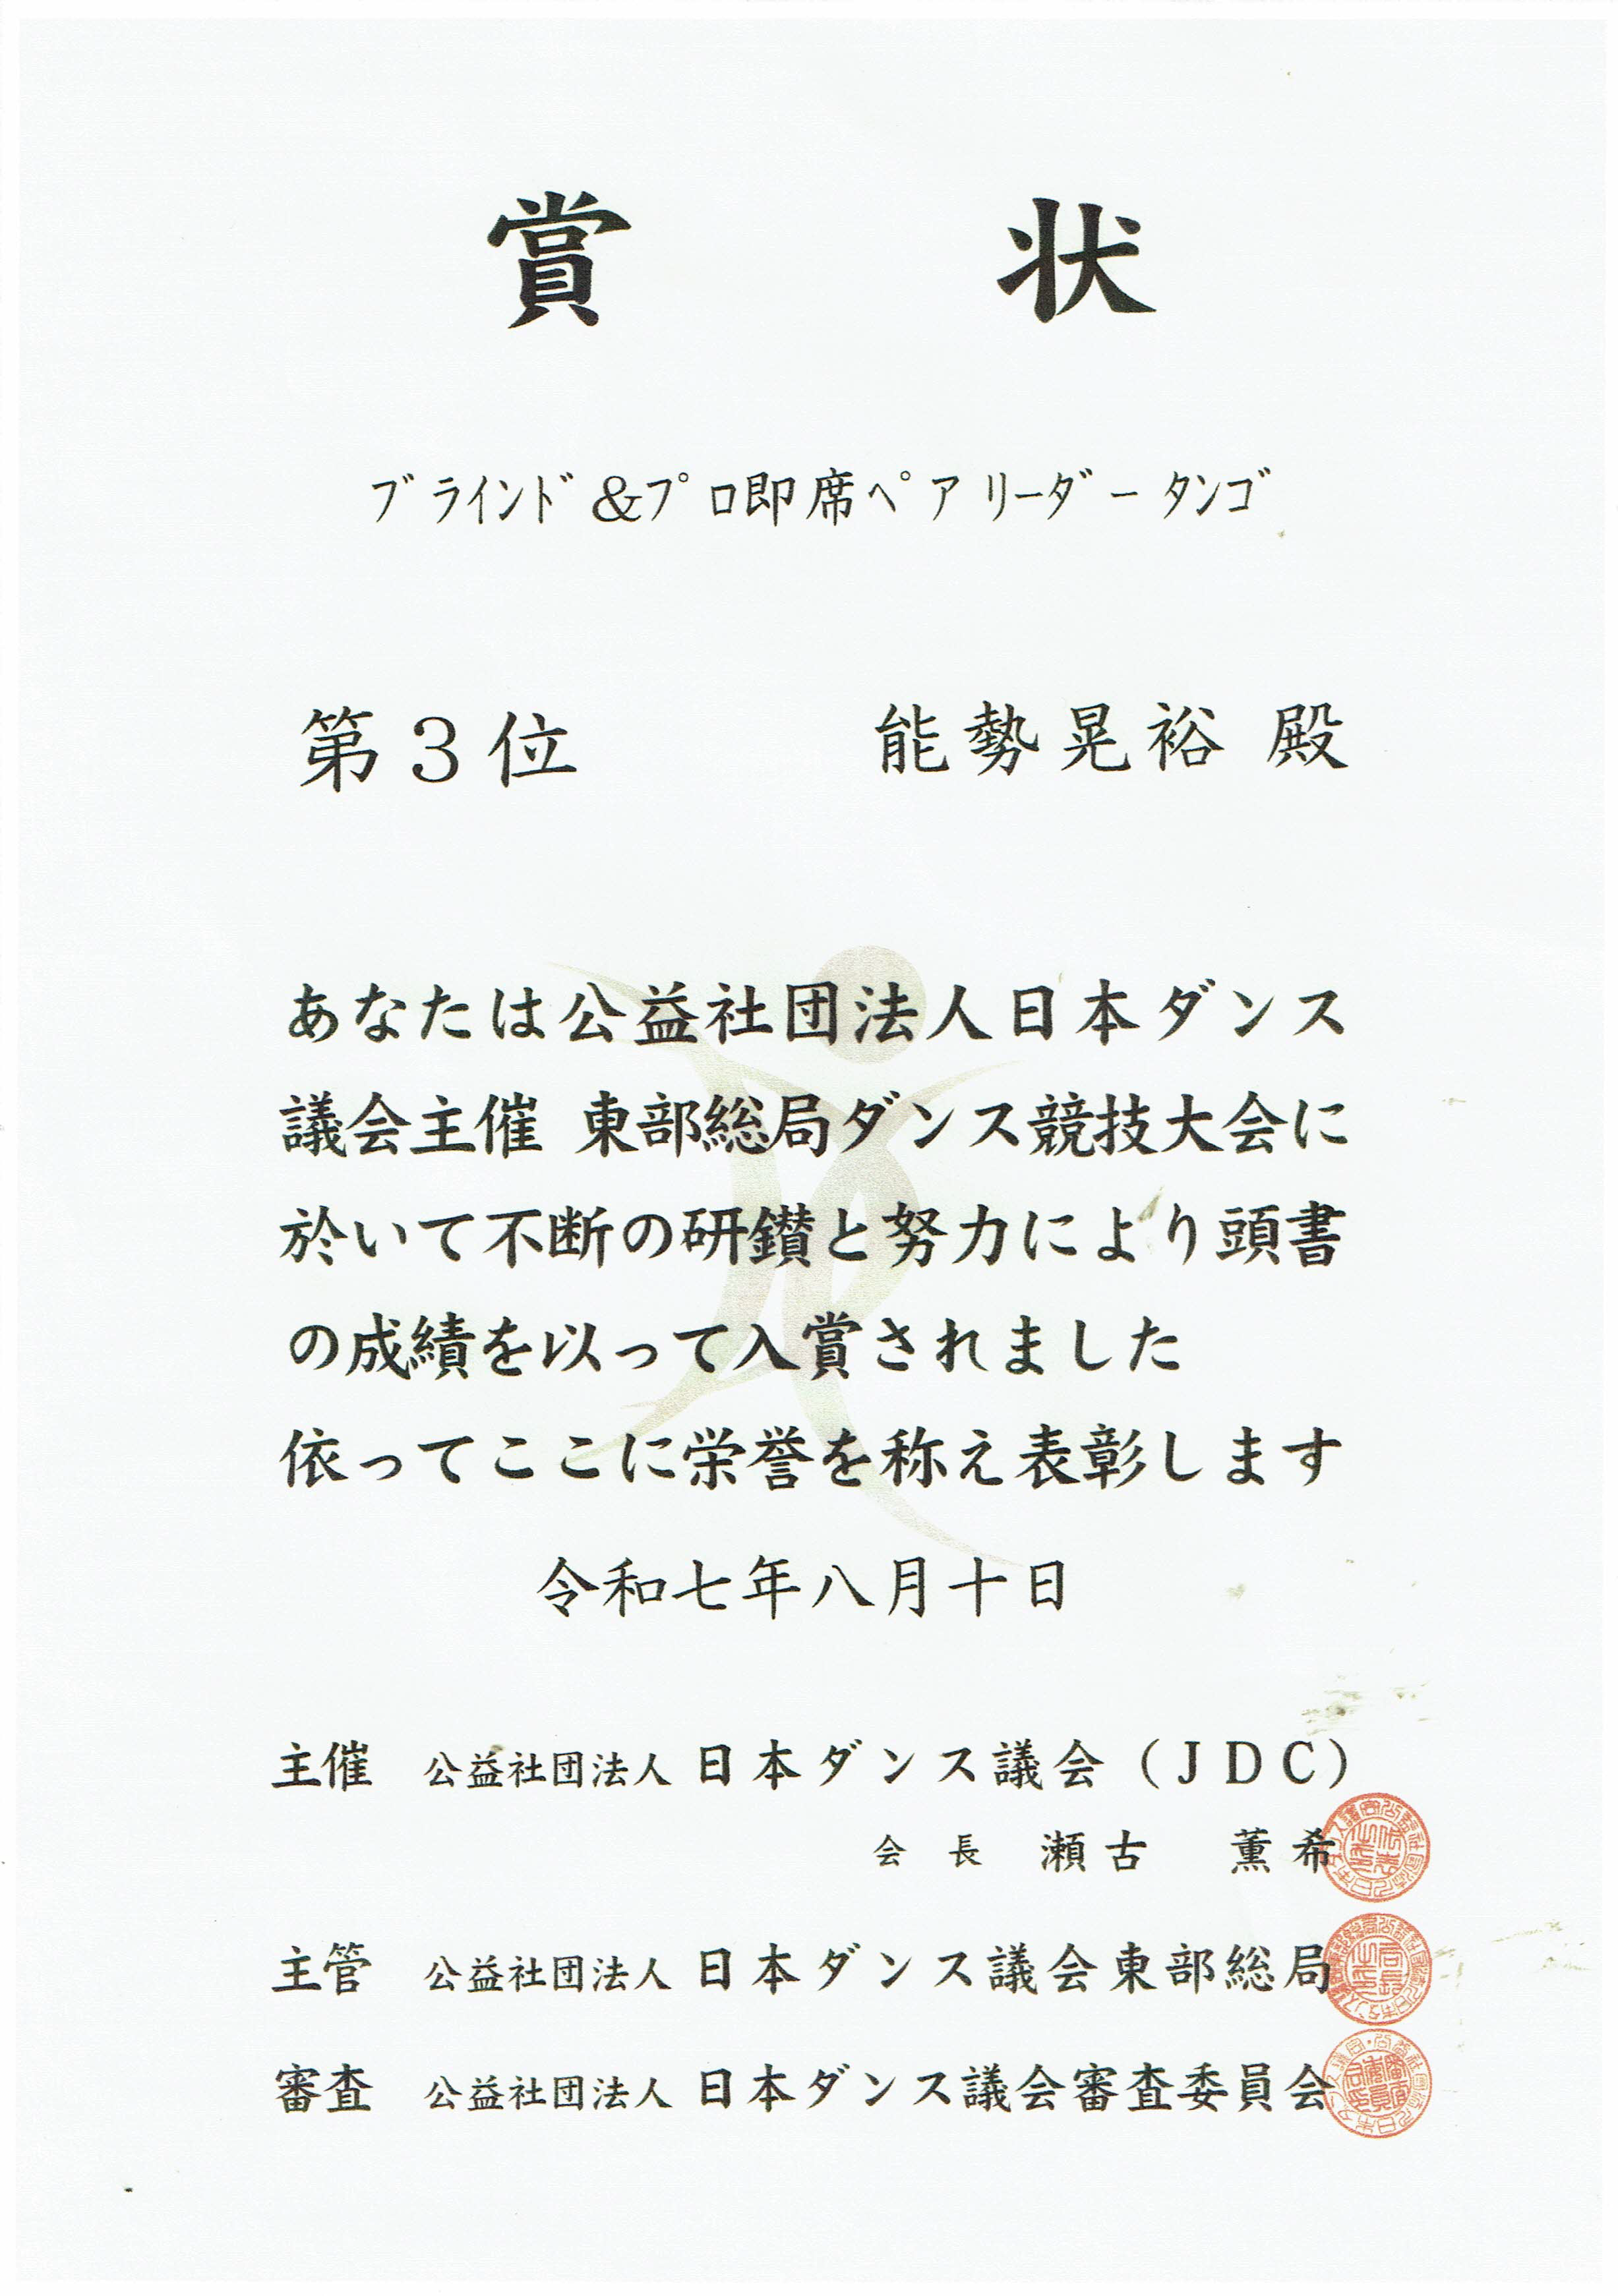 賞状
ﾌﾞﾗｲﾝﾄﾞ&ﾌﾟﾛ即席ﾍﾟｱ ﾘｰﾀﾞｰ ﾀﾝｺﾞ
第３位 能勢晃裕 殿
あなたは公益社団法人日本ダンス
議会主催 東部総局ダンス競技大会に
於いて不断の研鑽と努力により頭書
の成績を以って入賞されました
依ってここに栄誉を称え表彰します
令和七年八月十日
主催 公益社団法人 日本ダンス議会（ＪＤＣ）
会長 瀬古 薫希
主管 公益社団法人 日本ダンス議会東部総局
審査 公益社団法人 日本ダンス議会審査委員会